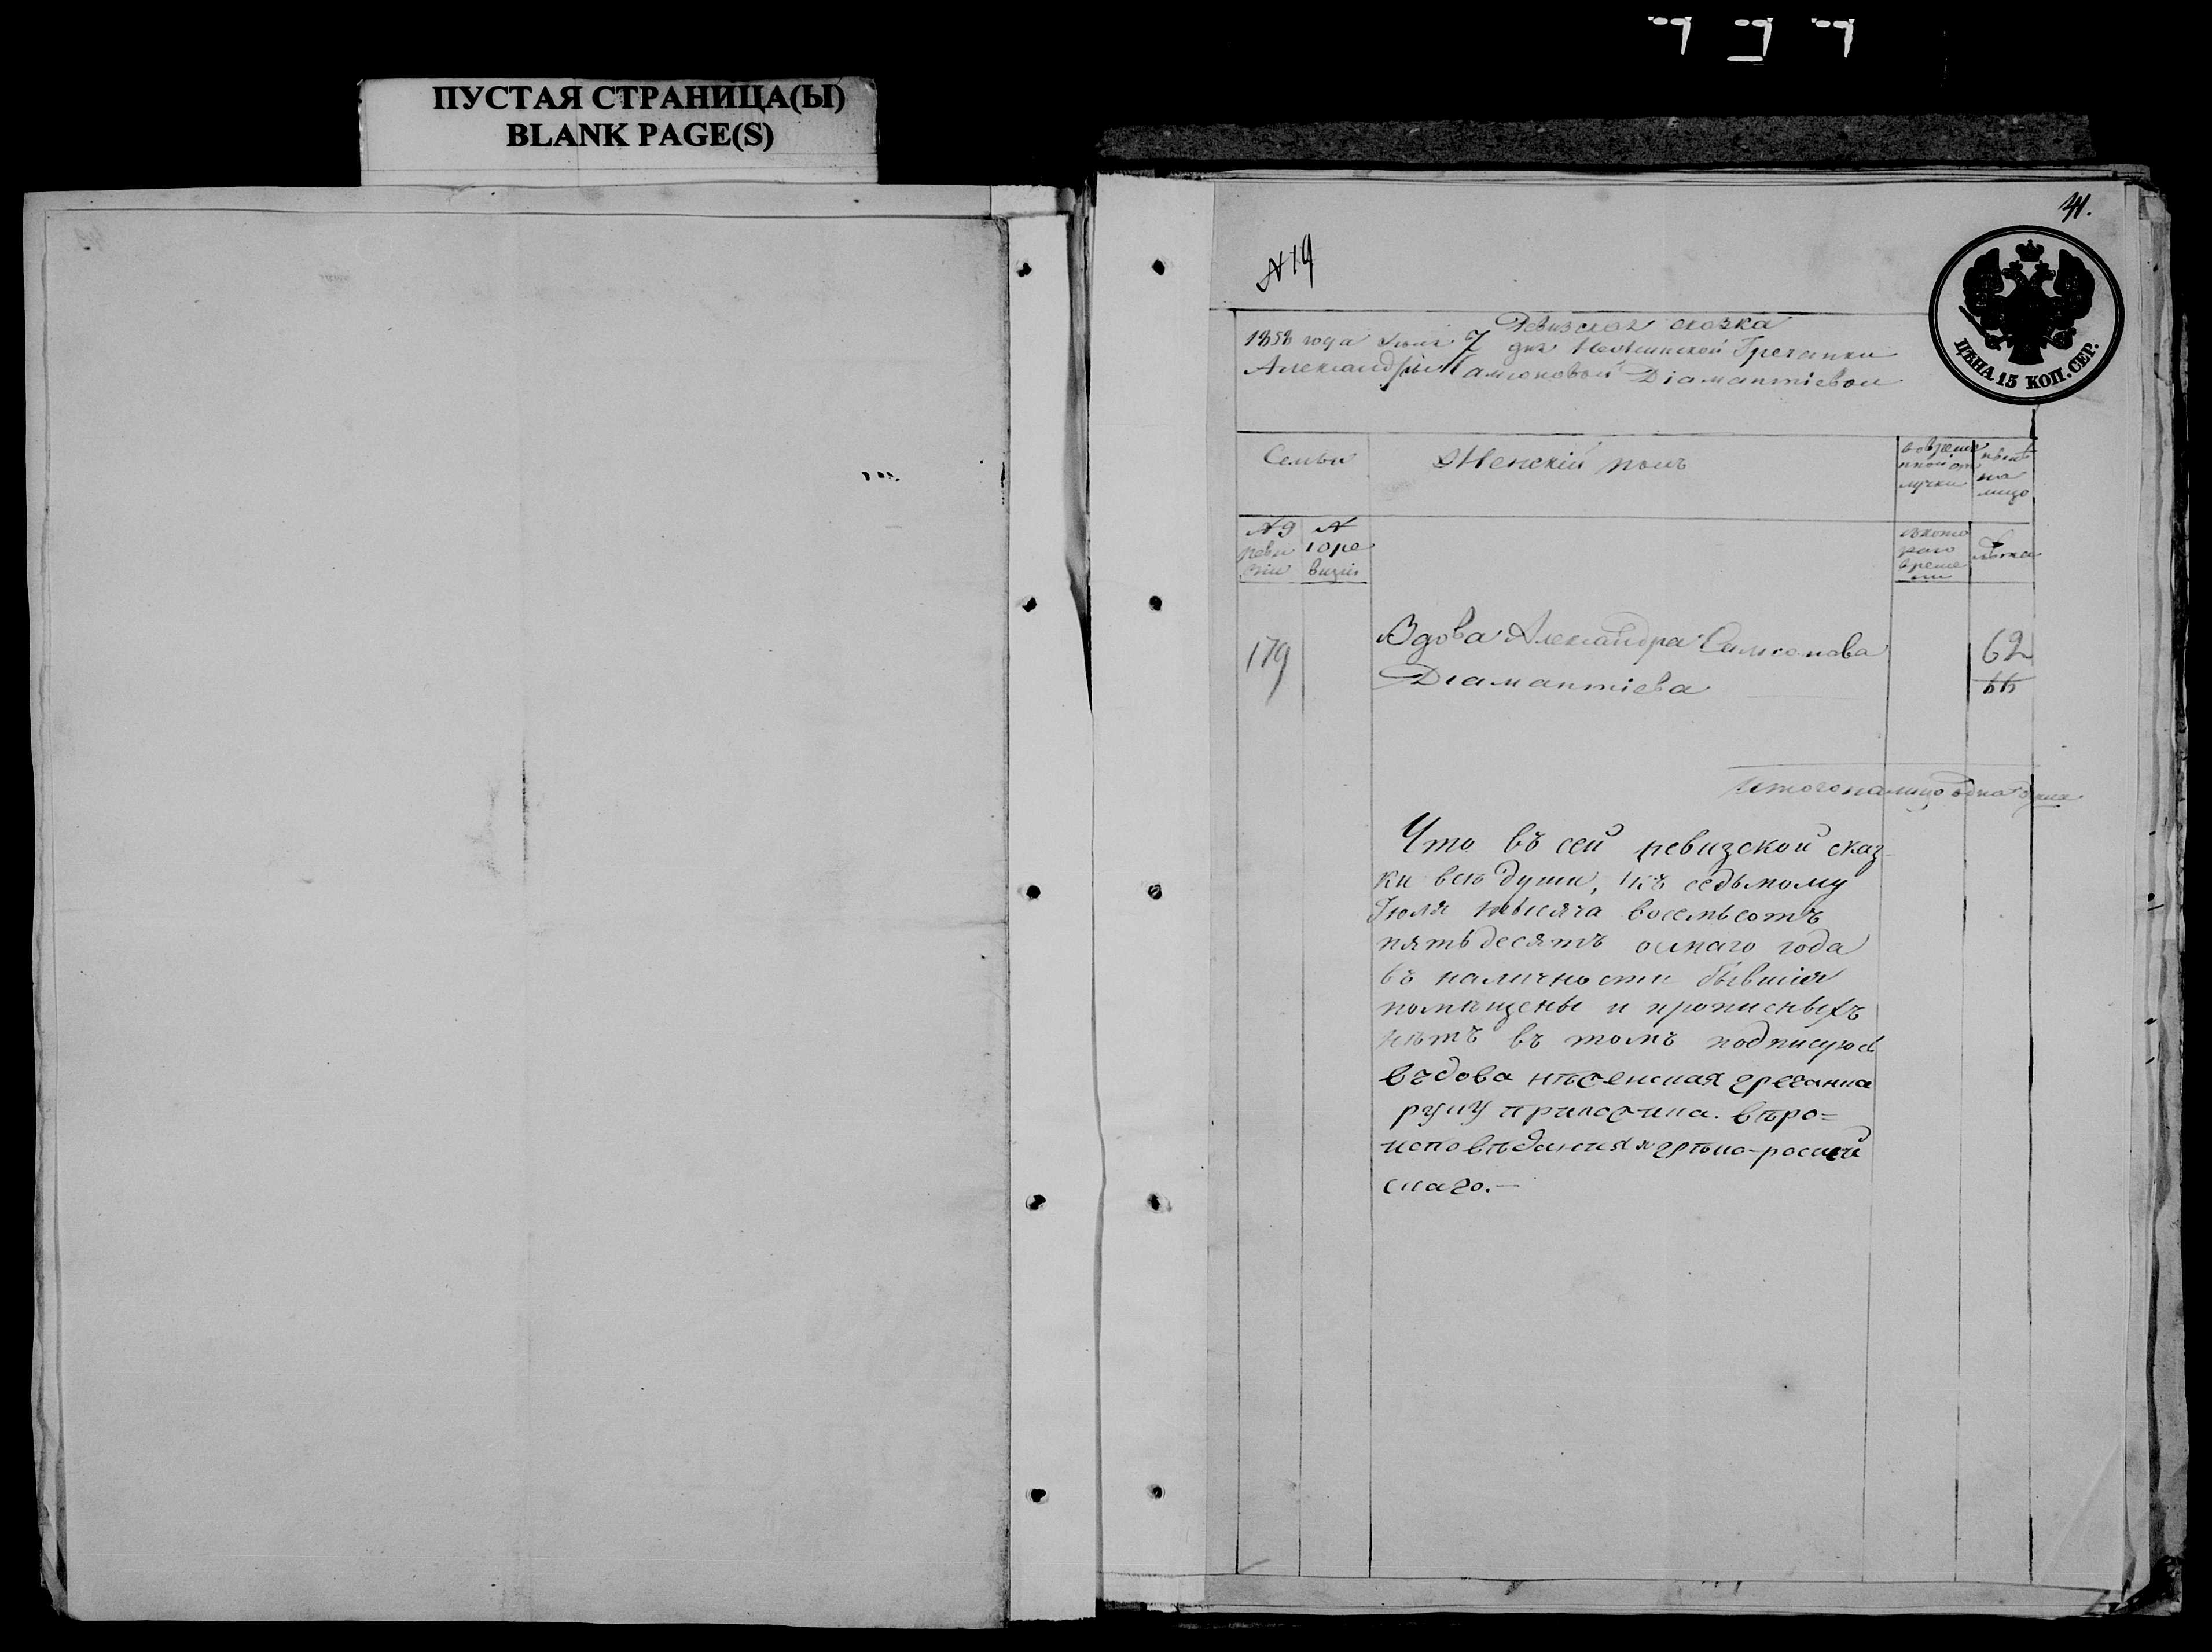 ПУСТАЯ СТРАНИЦА(Ы)
BLANK PAGE(S)
41.
N 19
ЦѢНА 15 КОП. СЕР.
Ревизская сказка
1858 года Іюля 7 дня Нѣжинской Гречанки
Александры Самсоновой Діамантіевой
Семьи
Женскій полъ
во времен
нной от
лучки
нынѣ
на
лицо
N 9
реви
зіи
N
10 ре
визіи
съ кото
раго
време
ни
Лѣта
179
Вдова Александра Самсонова
Діамантіева
62
Итого на лицо одна душа
Что въ сей ревизской сказ
ки всѣ души, къ седьмому
Іюля тысяча восемьсотъ
пятьдесятъ осмаго года
въ наличности бывшія
помѣщены и прописныхъ
нѣтъ въ томъ подписуюсь
въдова нѣженская гречанка
руку приложила. вѣро=
исповѣданія грѣко-россій
скаго.—